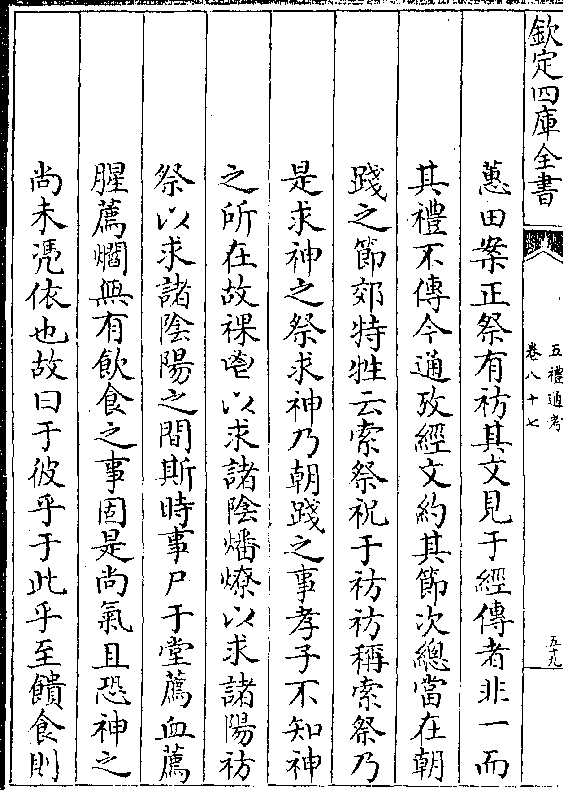 欽定四庫全書
五禮通考
卷八十七
五十九
蕙田案正祭有祊其文見于經傳者非一而
其禮不傳今通攷經文約其節次總當在朝
踐之節郊特牲云索祭祝于祊祊稱索祭乃
是求神之祭求神乃朝踐之事孝子不知神
之所在故祼鬯以求諸陰燔燎以求諸陽祊
祭以求諸陰陽之間斯時事尸于堂薦血薦
腥薦爓無有飲食之事固是尚氣且恐神之
尚未憑依也故曰于彼乎于此乎至饋食則